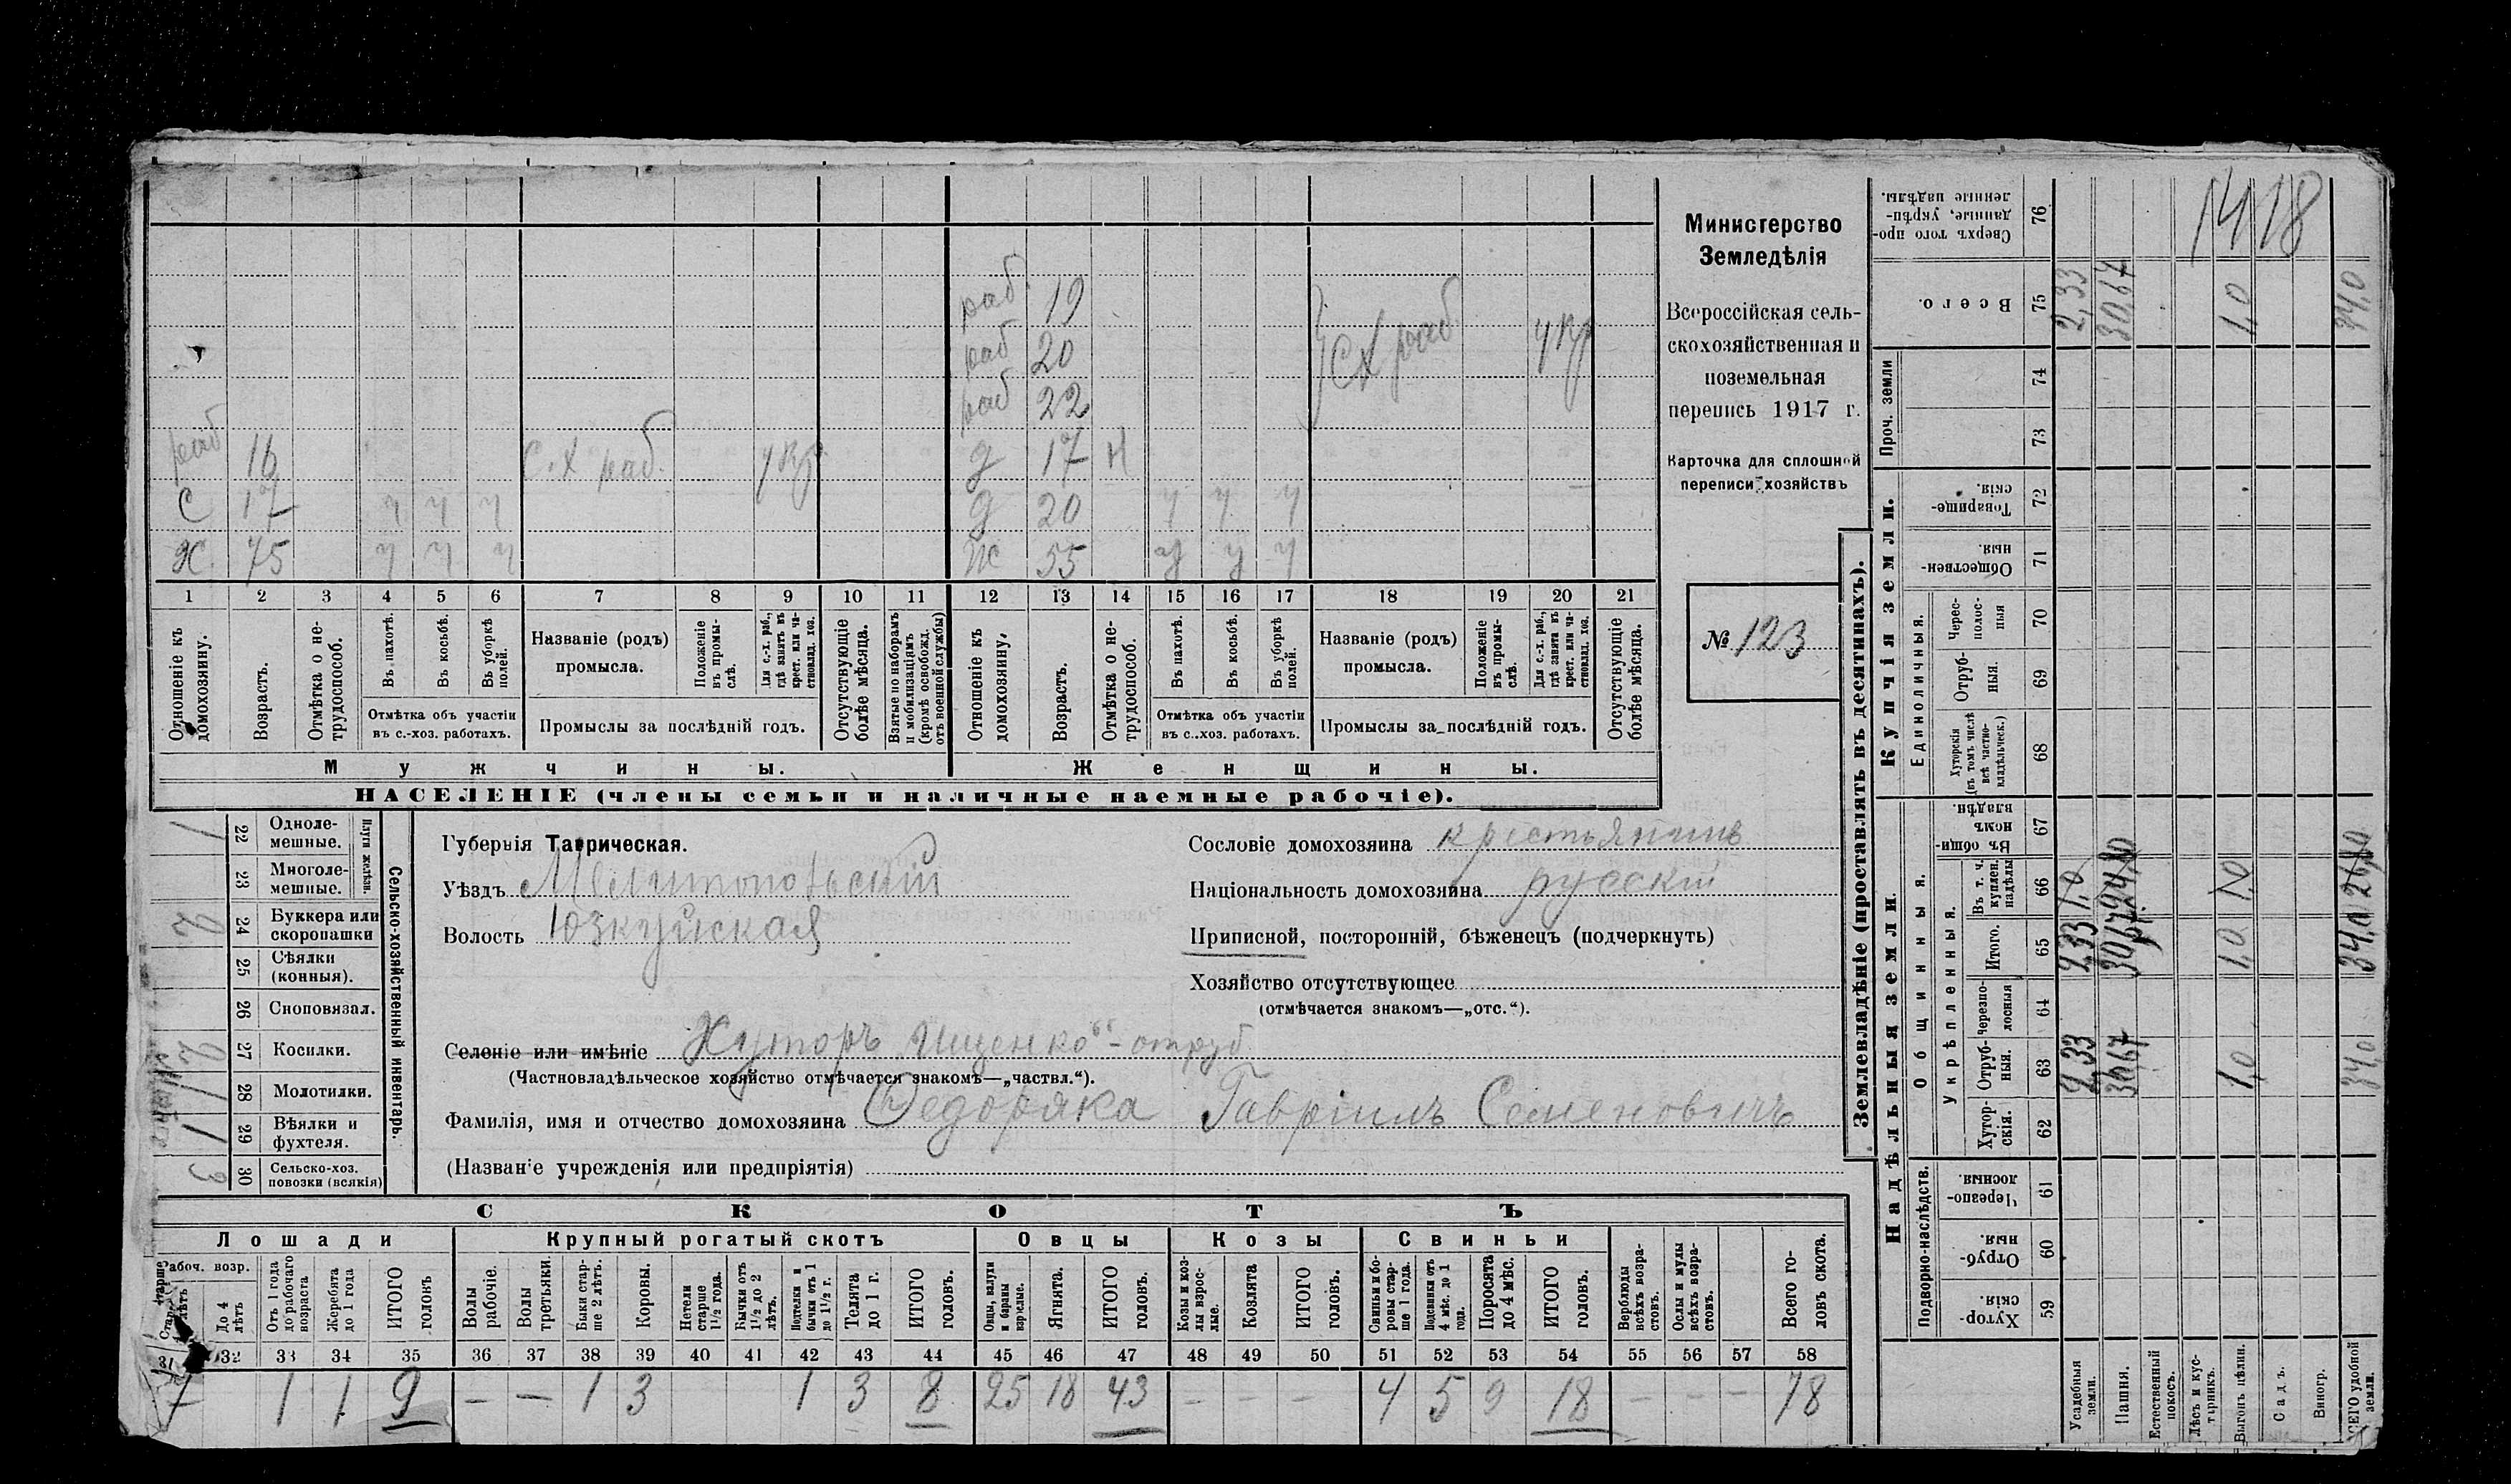 19
20
22
раб 16 С.Х раб. укр. д 17 н
С 17 ч ч ч д 20 ч ч ч
Х 75 ч ч ч ж 55 ч ч ч
1 2 3 4 5 6 7 8 9 10 11 12 13 14 15 16 17 18 19 20 21
Отношеніе къ домохозяину.
Возрастъ.
Отмѣтка о не-
трудоспособ.
Въ пахотѣ.
Въ косьбѣ.
Въ уборкѣ
полей.
Отмѣтка объ участіи
въ с.-хоз. работахъ.
Названіе (родъ)
промысла.
Положеніе
въ промы-
слѣ.
Для с.-х. раб.,
гдѣ занятъ въ
крест. или ча-
стновлад. хоз.
Промыслы за послѣдній годъ.
Отсутствующіе
болѣе мѣсяца.
Взятые по наборамъ
и мобилизаціямъ
(кромѣ освобожд.
отъ военной службы)
Отношеніе къ
домохозяину.
Возрастъ.
Отмѣтка о не-
трудоспособ.
Въ пахотѣ.
Въ косьбѣ.
Въ уборкѣ
полей.
Отмѣтка объ участіи
въ с.-хоз. работахъ.
Названіе (родъ)
промысла.
Положеніе
въ промы-
слѣ.
Для с.-х. раб.,
гдѣ занята въ
крест. или ча-
стновлад. хоз.
Промыслы за послѣдній годъ.
Отсутствующіе
болѣе мѣсяца.
Мужчины. Женщины.
НАСЕЛЕНІЕ (члены семьи и наличные наемные рабочіе).
Министерство
Земледѣлія
Всероссійская сель-
скохозяйственная и
поземельная
перепись 1917 г.
Карточка для сплошной
переписи хозяйствъ
№ 123
Сельско-хозяйственный инвентарь.
Плуги желѣзн.
1 22 Одноле-
мешные.
23 Многоле-
мешные.
2 24 Буккера или
скоропашки
25 Сѣялки
(конныя).
26 Сноповязал.
2 27 Косилки.
1 28 Молотилки.
1 29 Вѣялки и
фухтеля.
3 30 Сельско-хоз.
повозки (всякія)
Губернія Таврическая.
Уѣздъ Мелитопольскій
Волость Юзкуйская
Сословіе домохозяина крестьянинъ
Національность домохозяина русскій
Приписной, посторонній, бѣженецъ (подчеркнуть)
Хозяйство отсутствующее
(отмѣчается знакомъ—„отс.“).
Селеніе или имѣніе Хуторъ „Ищенко“ - отруб
(Частновладѣльческое хозяйство отмѣчается знакомъ—„частвл.“).
Фамилія, имя и отчество домохозяина Федоряка Гавріилъ Семеновичъ
(Названіе учрежденія или предпріятія)
СКОТЪ
Лошади Крупный рогатый скотъ Овцы Козы Свиньи
До 4
лѣтъ
Отъ 1 года
до рабочаго
возраста
Жеребята
до 1 года
ИТОГО
головъ
Волы
рабочіе.
Волы
третьяки.
Быки стар-
ше 2 лѣтъ.
Коровы.
Нетели
старше
1½ года.
Бычки отъ
1½ до 2
лѣтъ.
Подтелки и
бычки отъ 1
до 1½ г.
Телята
до 1 г.
ИТОГО
головъ.
Овцы, валухи
и бараны
взрослые.
Ягнята.
ИТОГО
головъ.
Козы и коз-
лы взрос-
лые.
Козлята
ИТОГО
головъ.
Свиньи и бо-
ровы стар-
ше 1 года.
Подсвинки отъ
4 мѣс. до 1
года.
Поросята
до 4 мѣс.
ИТОГО
головъ.
Верблюды
всѣхъ возра-
стовъ.
Ослы и мулы
всѣхъ возра-
стовъ.
Всего го-
ловъ скота.
31 32 33 34 35 36 37 38 39 40 41 42 43 44 45 46 47 48 49 50 51 52 53 54 55 56 57 58
7 1 1 9 — — 1 3 1 3 8 25 18 43 — — — 4 5 9 18 — — — 78
Землевладѣніе (проставлять въ десятинахъ).
1418
Сверхъ того про-
данные, укрѣп-
ленные надѣлы. 76
Всего. 75 2,33 30,67 1,0 34,0
Проч. земли 74
73
Купчія земли.
Товарище-
скія. 72
Обществен-
ныя. 71
Единоличныя.
Черес-
полос-
ныя 70
Отруб-
ныя. 69
Хуторскія
(въ томъ числѣ
всѣ частно-
владѣльческ.) 68
Надѣльныя земли.
Общинныя.
Въ общи-
номъ
владѣн. 67
Укрѣпленныя.
Въ т. ч.
куплен.
надѣлы 66 1,0 1,0
Итого. 65 2,33 30,67 1,0 34,0
Черезпо-
лосныя 64
Отруб-
ныя. 63 2,33 30,67 1,0 34,0
Хутор-
скія. 62
Подворно-наслѣдств.
Черезпо-
лосныя 61
Отруб-
ныя. 60
Хутор-
скія. 59
Усадебныя
земли.
Пашня.
Естественный
покосъ.
Лѣсъ и кус-
тарникъ.
Выгонъ цѣлин.
Садъ.
Виногр.
ВСЕГО удобной
земли.